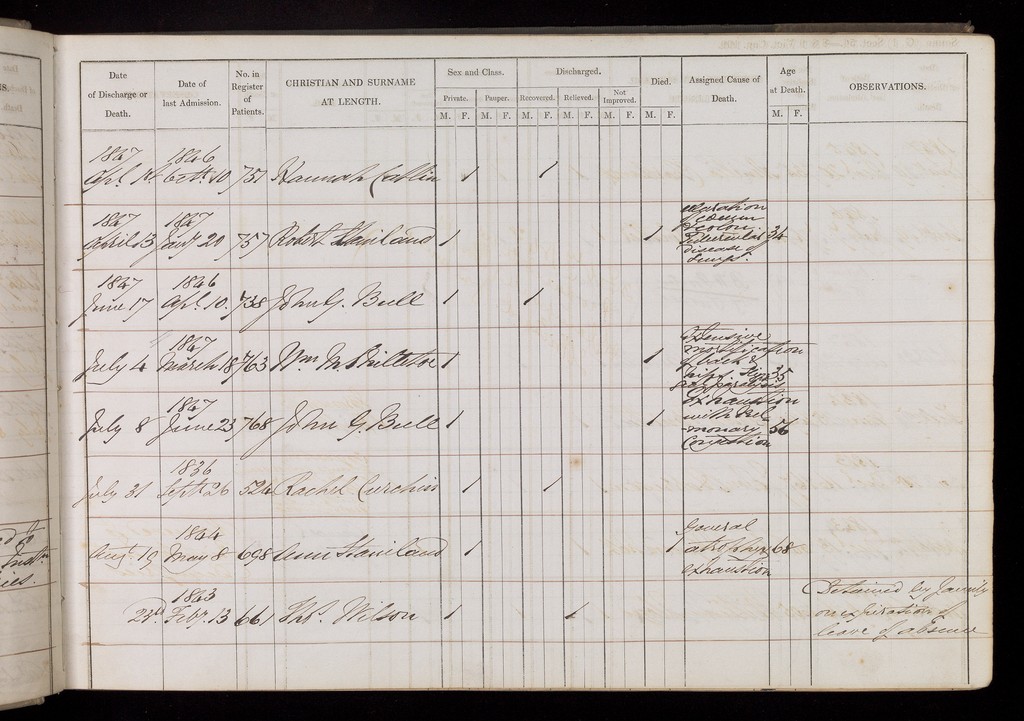 Date
of Discharge or
Death.
Date of
last Admission.
No. in
Register
of
Patients.
CHRISTIAN AND SURNAME
AT LENGTH.
Sex and Class.
Private. Pauper.
M. F. M. F.
Discharged.
Recovered. Relieved. Not Improved.
M. F. M. F. M. F.
Died.
M. F.
Assigned Cause of
Death.
Age
at Death.
M. F.
OBSERVATIONS.
1847 1846
Apl. 10 751 Hannah 1 1
1847 1847
April 13 Jany 20 757 Robert Staniland 1 1 34
Tubercular
disease of
1847 1846
June 17 Apl. 10. 738 John G. Bull 1 1
1847
July 4 March 18 763 Wm 1 1 35
Extensive
mortification
of back &
hips.
1847
July 8 June 23 768 John G. Bull 1 1 56
Exhaustion
with Pul
monary
Congestion
1836
July 31 Sept. 26 524 Rachel 1 1
1844
Augt. 19 May 8 698 Ann Staniland 1 1 68
General
atrophy &
exhaustion
1843
23d Feby. 13 661 Thos. Wilson 1 1
Detained by family
on expiration of
leave of absence